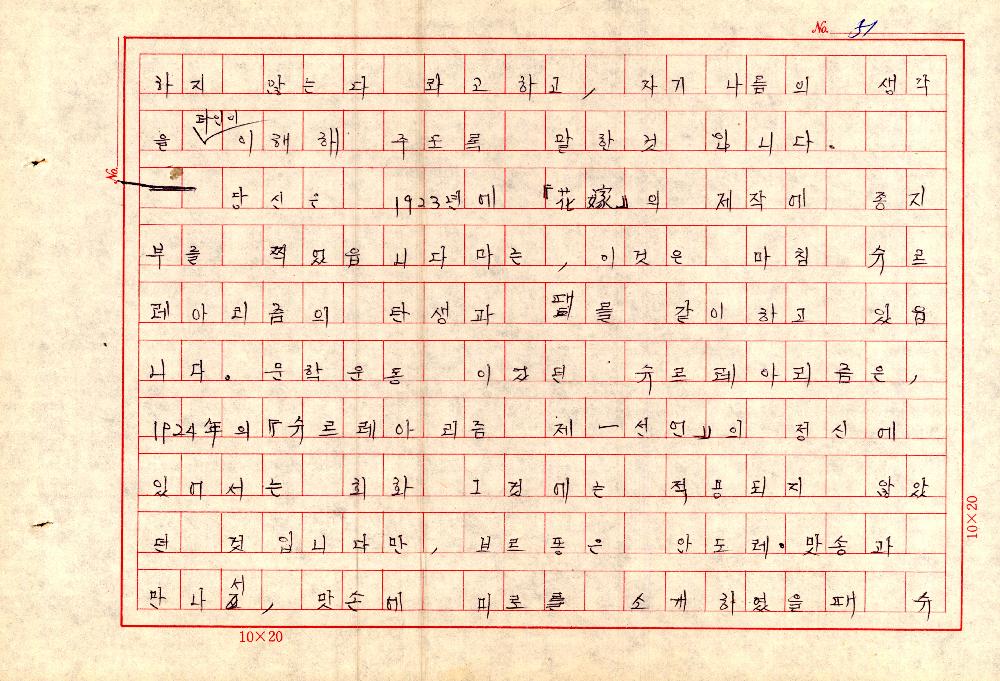 No. 51
하지 않는다 라고하고, 자기 나름의 생각
타인이
을 이해해 주도록 말한것 입니다.
No.
당신은 1923년에 『花嫁』의 제작에 종지
부를 찍었읍니다마는, 이것은 마침 슈르
레아리즘의 탄생과 때를 같이하고 있읍
니다. 문학운동 이었던 슈르레아리즘은,
1924年의 『슈르레아리즘 제一선언』의 정신에
있어서는 회화 그것에는 적용되지 않았
던 것입니다만, 브르똥은 안도레·맛송과
만나서, 맛손에 미로를 소개하였을때 슈
10×20
10×20